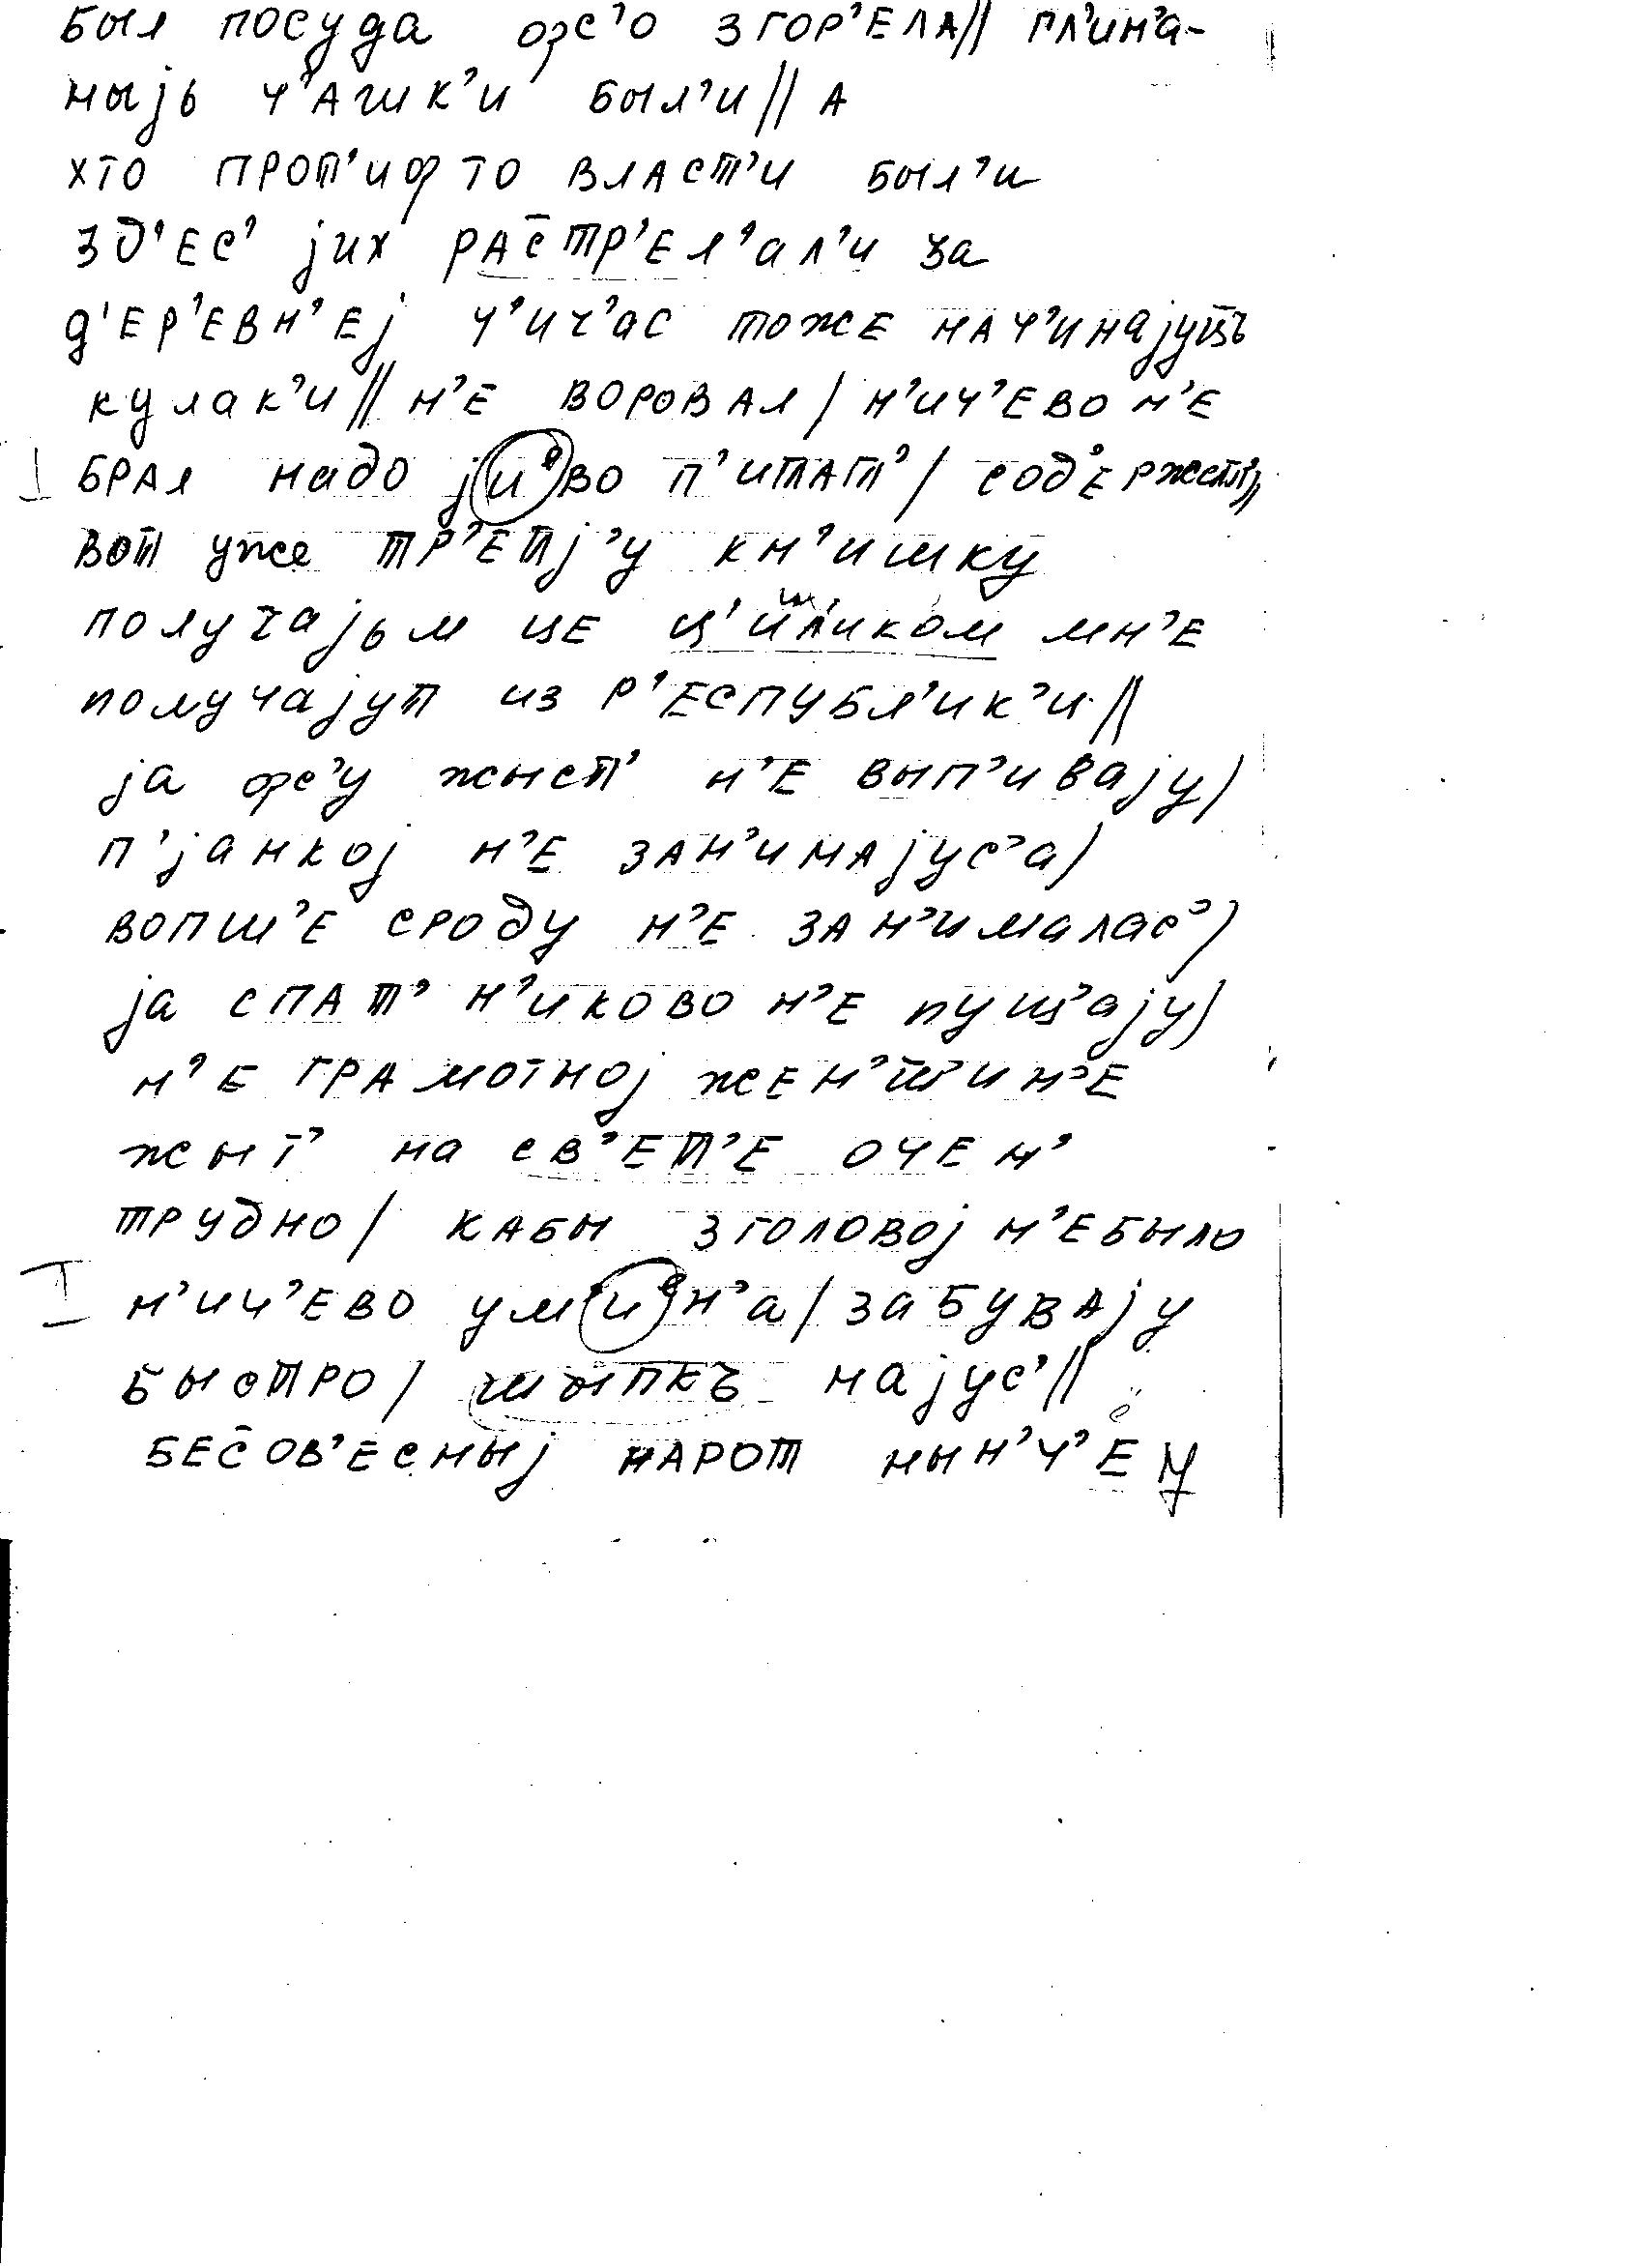 был посуда фс’о згор’ела// гл’ин’а-
ныjь ч’ашк’и был’и// а
хто прот’иф то власт’и был’и
зд’ес’ jих рас̄тр’ел’ал’и за
д’ер’евн’еj ч’ич’ас тоже нач’инаjуц̄ъ
кулак’и// н’е воровал/ н’ич’ево н’е
брал надо jиᵉво п’итат’/ сод’ержат’//
вот уже тр’етj’у кн’ишку
получаjьм це мн’е
получаjут из р’еспубл’ик’и//
jа фс’у жыст’ н’е вып’иваjу/
п’jанкоj н’е зан’имаjус’а/
вопш’е сроду н’е зан’ималас’/
jа спат’ н’иково н’е пущ’аjу/
н’е грамотноj жен’ш̄’ин’е
жыт’ на св’ет’е очен’
трудно/ кабы зголовоj н’е было
н’ич’ево ум’иᵉн’а/ забуваjу
быстро/ шыпкъ маjус’//
бес̄ов’есныj нарот нын’ч’е